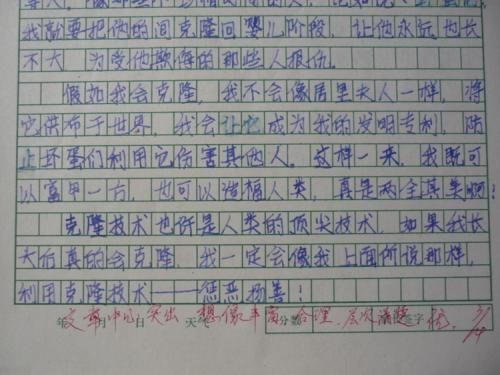 我就要把他的间克隆回婴儿阶段，让他永远也长
不大，为受他欺侮的那些人报仇。
假如我会克隆，我不会像居里夫人一样，将
它供布于世界，我会让它成为我的发明专利，防
止坏蛋们利用它伤害其他人。这样一来，我既可
以富甲一方，也可以造福人类，真是两全其美啊！
克隆技术也许是人类的顶尖技术，如果我长
大后真的会克隆，我一定会像我上面所说那样，
利用克隆技术——惩恶扬善！
文章中心突出 想像丰富 合理，层次清楚
年 月 日 天 分数 签字